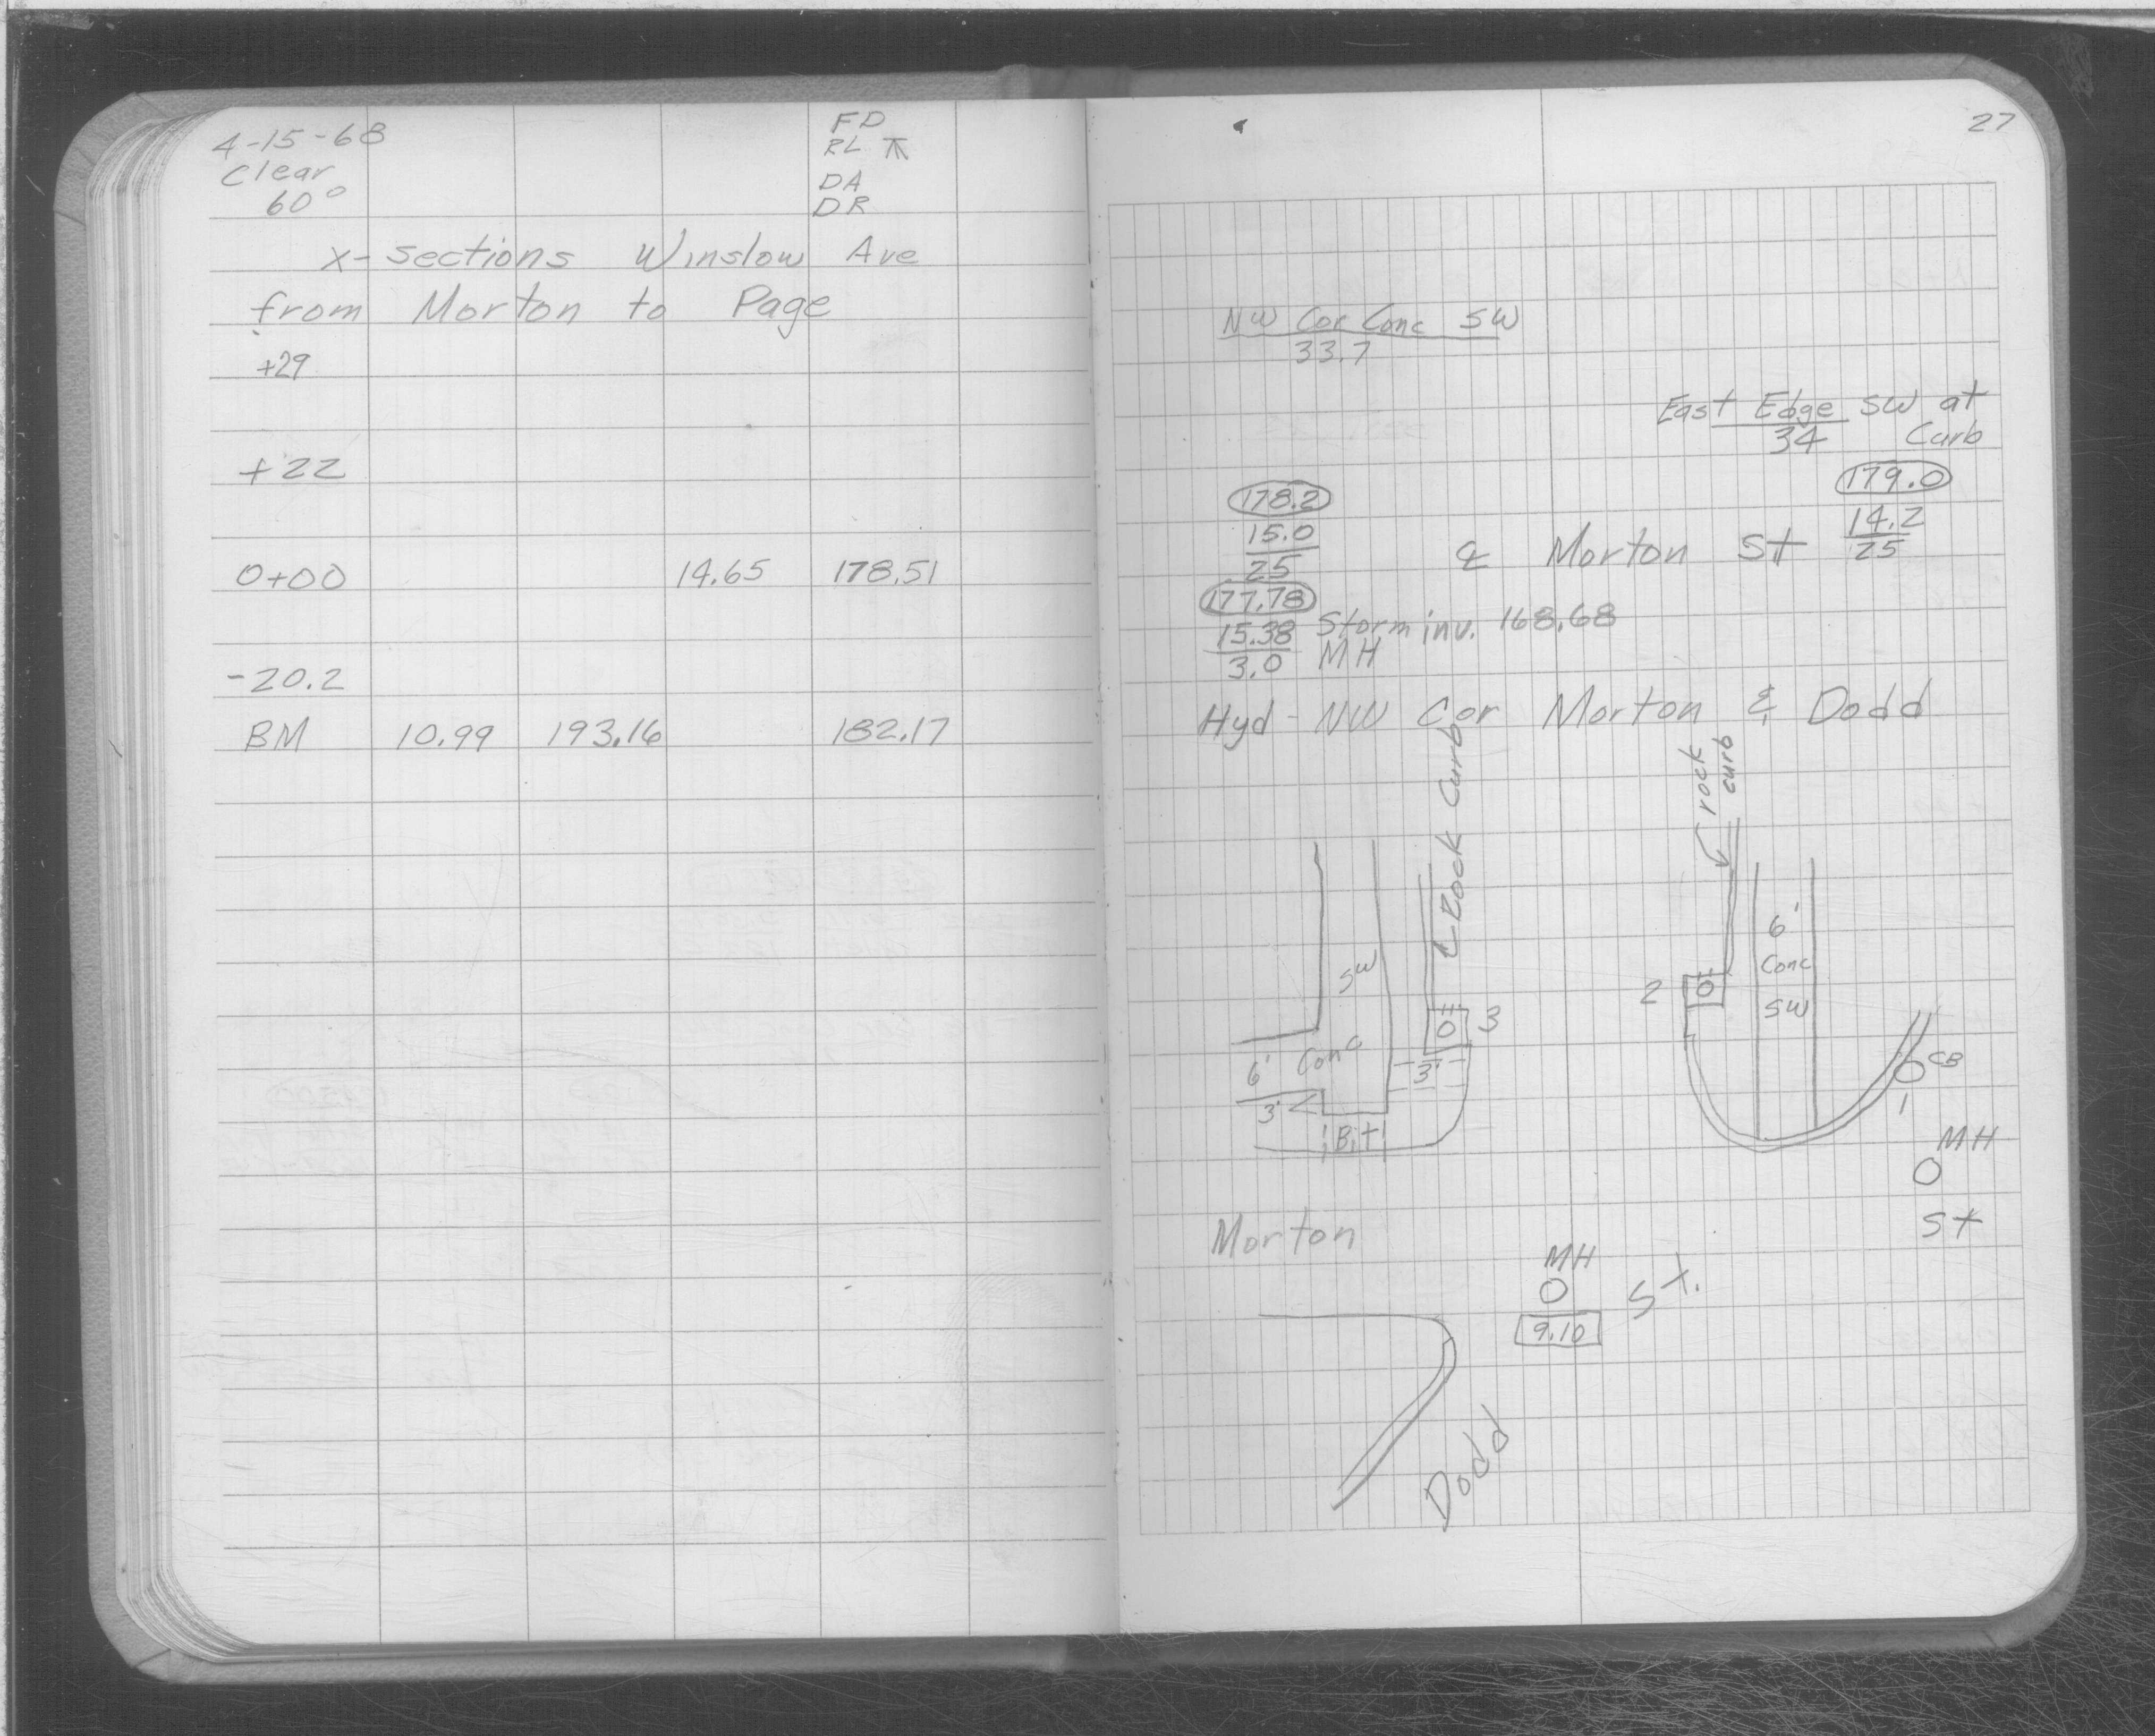 4-15-68
Clear
60°
FD
RL
DA
DR
x-sections Winslow Ave
from Morton to Page
+29
+22
0+00 14.65 178.51
-20.2
BM 10.99 193.16 182.17
27
NW Cor Conc SW
33.7
East Edge SW at
34 Curb
178.2 179.0
15.0 14.2
25 25
℄ Morton St
177.78
15.38 Storm inv. 168.68
3.0 MH
Hyd - NW Cor Morton & Dodd
Rock Curb
rock
curb
SW
6' Conc
3'
Bit
3'
3
2
6'
Conc
SW
CB
1
MH
St
Morton
MH
9.10
St.
Dodd